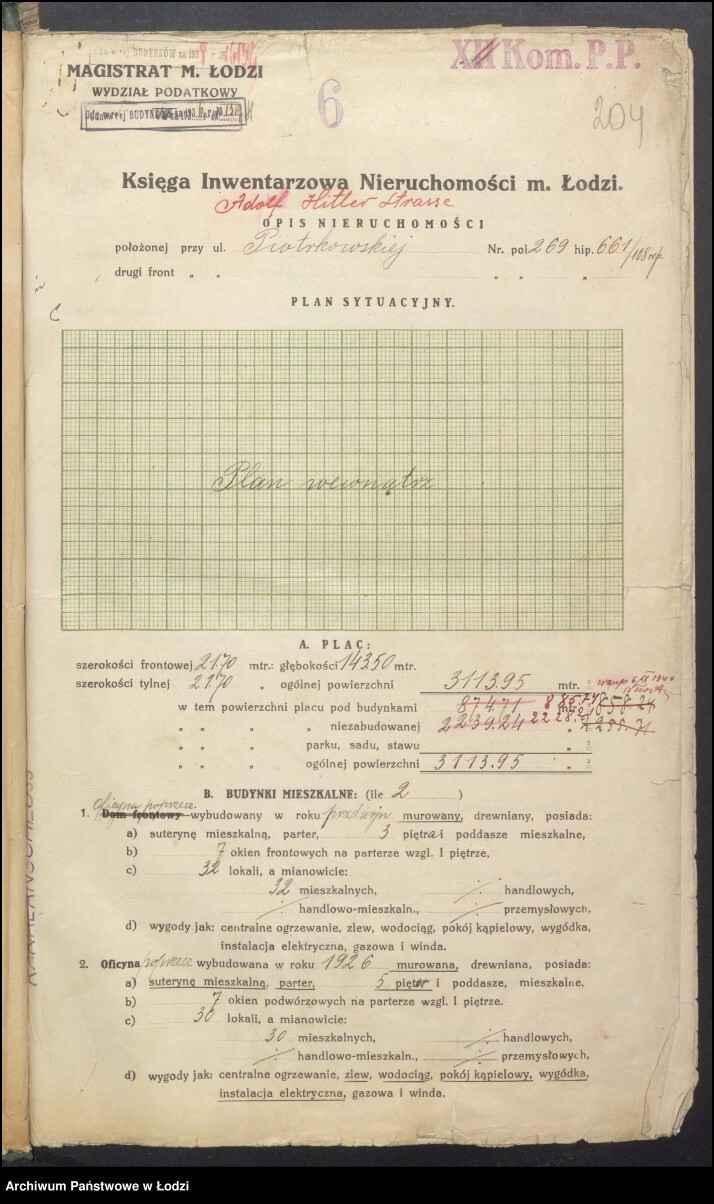 XII Kom. P.P.
MAGISTRAT M. ŁODZI
WYDZIAŁ PODATKOWY
6
204
Księga Inwentarzowa Nieruchomości m. Łodzi.
Adolf Hitler Strasse
OPIS NIERUCHOMOŚCI
położonej przy ul. Piotrkowskiej Nr. pol. 269 hip. 661/108 rep.
drugi front „ „ „ „ „
PLAN SYTUACYJNY.
Plan wewnątrz
A. PLAC:
szerokości frontowej 21.70 mtr.: głębokości 143.50 mtr.
szerokości tylnej 21.70 „ ogólnej powierzchni 3113.95 mtr. ²
w tem powierzchni placu pod budynkami 874.71 885.74 mtr. 858.24
„ „ „ „ niezabudowanej 2239.24 2228.21 „ 2255.71
„ „ „ parku, sadu, stawu „ ²
„ „ „ ogólnej powierzchni 3113.95 „ ²
B. BUDYNKI MIESZKALNE: (ile 2 )
Oficyna poprzecz.
1. Dom frontowy wybudowany w roku przed wojn murowany, drewniany, posiada:
a) suterynę mieszkalną, parter, 3 piętra i poddasze mieszkalne,
b) 7 okien frontowych na parterze wzgl. I piętrze,
c) 32 lokali, a mianowicie:
32 mieszkalnych, ·/· handlowych,
·/· handlowo-mieszkaln., ·/· przemysłowych,
d) wygody jak: centralne ogrzewanie, zlew, wodociąg, pokój kąpielowy, wygódka,
instalacja elektryczna, gazowa i winda.
2. Oficyna poprzecz wybudowana w roku 1926 murowana, drewniana, posiada:
a) suterynę mieszkalną, parter, 5 pięter i poddasze, mieszkalne,
b) 7 okien podwórzowych na parterze wzgl. I piętrze.
c) 30 lokali, a mianowicie:
30 mieszkalnych, ·/· handlowych,
·/· handlowo-mieszkaln., ·/· przemysłowych,
d) wygody jak: centralne ogrzewanie, zlew, wodociąg, pokój kąpielowy, wygódka,
instalacja elektryczna, gazowa i winda.
Archiwum Państwowe w Łodzi